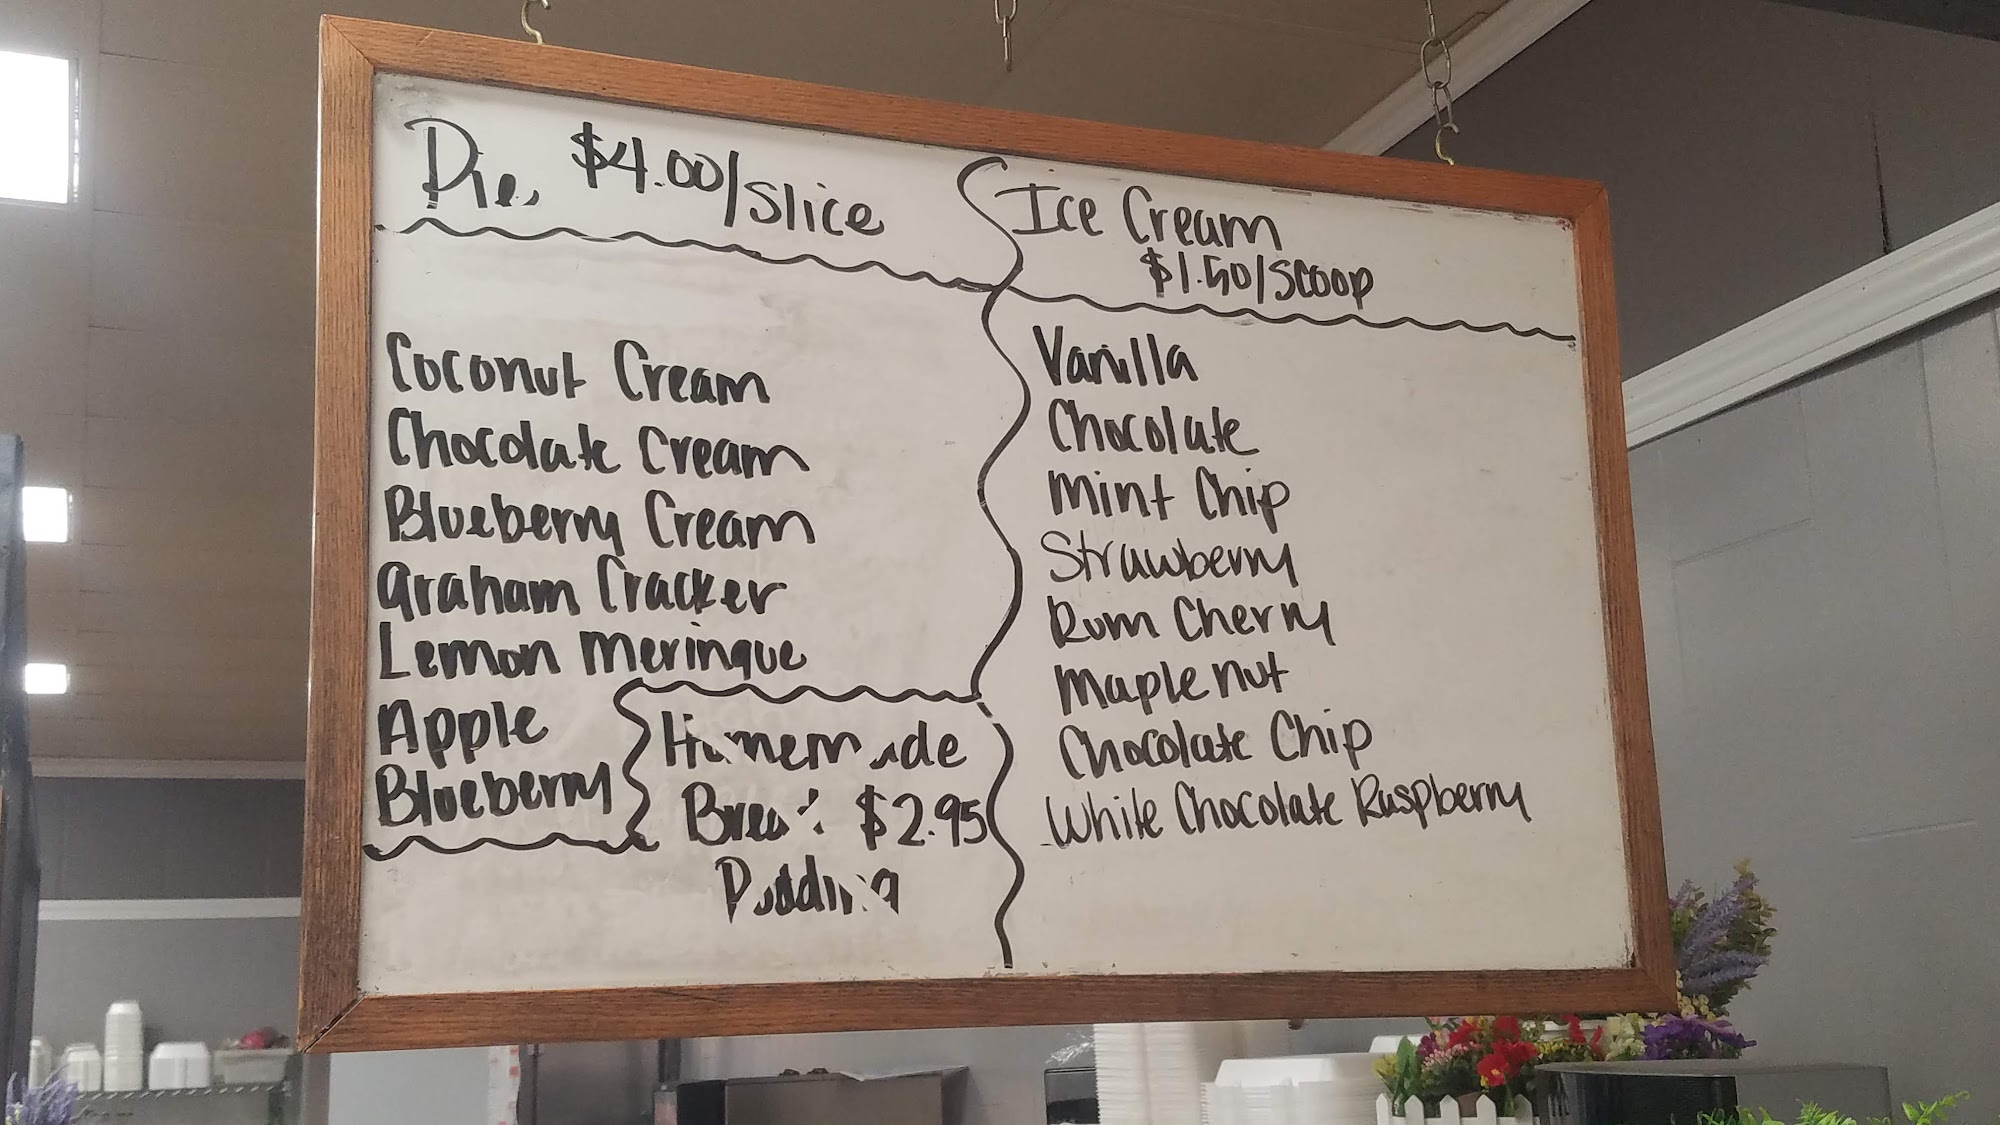 Pie $4.00/slice
Coconut Cream
Chocolate Cream
Blueberry Cream
Graham Cracker
Lemon Meringue
Apple
Blueberry
Homemade
Bread $2.95
Pudding
Ice Cream
$1.50/scoop
Vanilla
Chocolate
Mint Chip
Strawberry
Rum Cherry
Maple Nut
Chocolate Chip
White Chocolate Raspberry